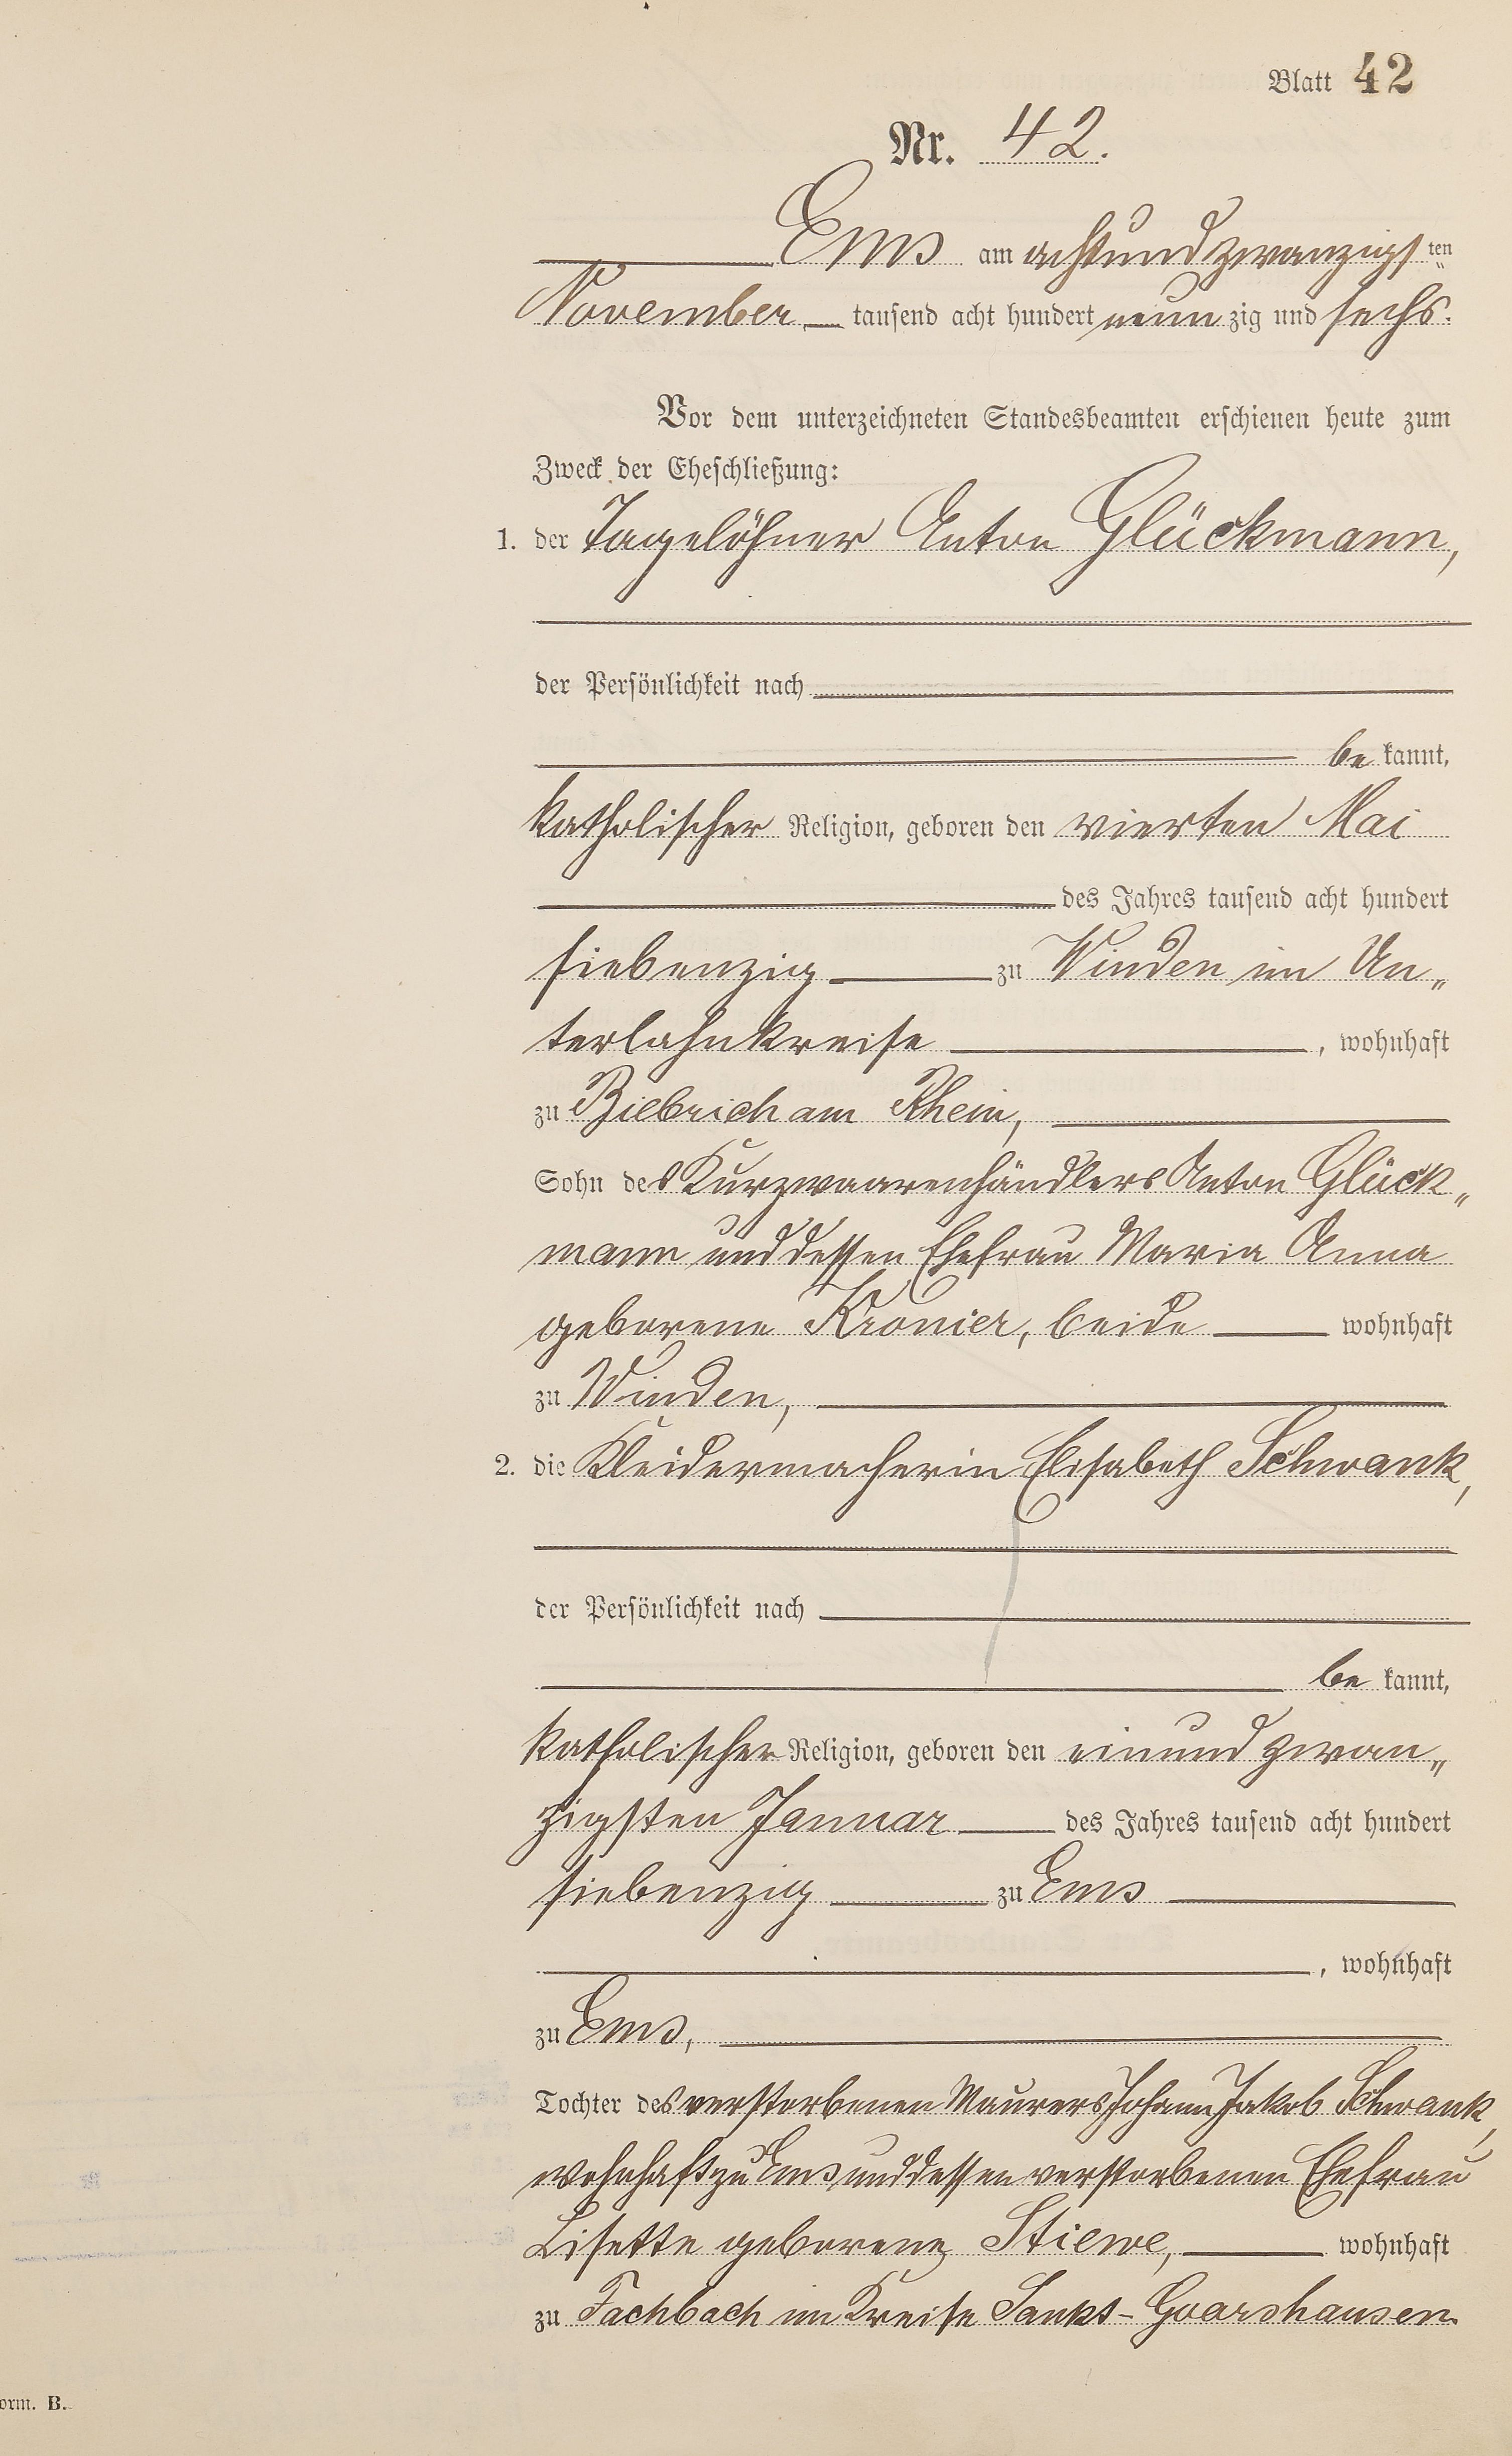 Blatt 42
Nr. 42.
Ems am achtundzwanzigsten
November tausend acht hundert neunzig und sechs.
Vor dem unterzeichneten Standesbeamten erschienen heute zum
Zweck der Eheschließung:
1. der Tagelöhner Anton Glückmann,
der Persönlichkeit nach
be kannt,
katholischer Religion, geboren den vierten Mai
des Jahres tausend acht hundert
siebenzig zu Winden im Un„
terlahnkreise, wohnhaft
zu Biebrich am Rhein,
Sohn des Kurzwaarenhändlers Anton Glück„
mann und dessen Ehefrau Maria Anna
geborene Kronier, beide wohnhaft
zu Winden,
2. die Kleidermacherin Elisabeth Schwank,
der Persönlichkeit nach
be kannt,
katholischer Religion, geboren den einundzwan„
zigsten Januar des Jahres tausend acht hundert
siebenzig zu Ems
, wohnhaft
zu Ems,
Tochter des verstorbenen Maurers Johann Jakob Schwank,
wohnhaft zu Ems und dessen verstorbenen Ehefrau
Lisette geborene Stiewe, wohnhaft
zu Fachbach im Kreise Sankt-Goarshausen
orm. B.